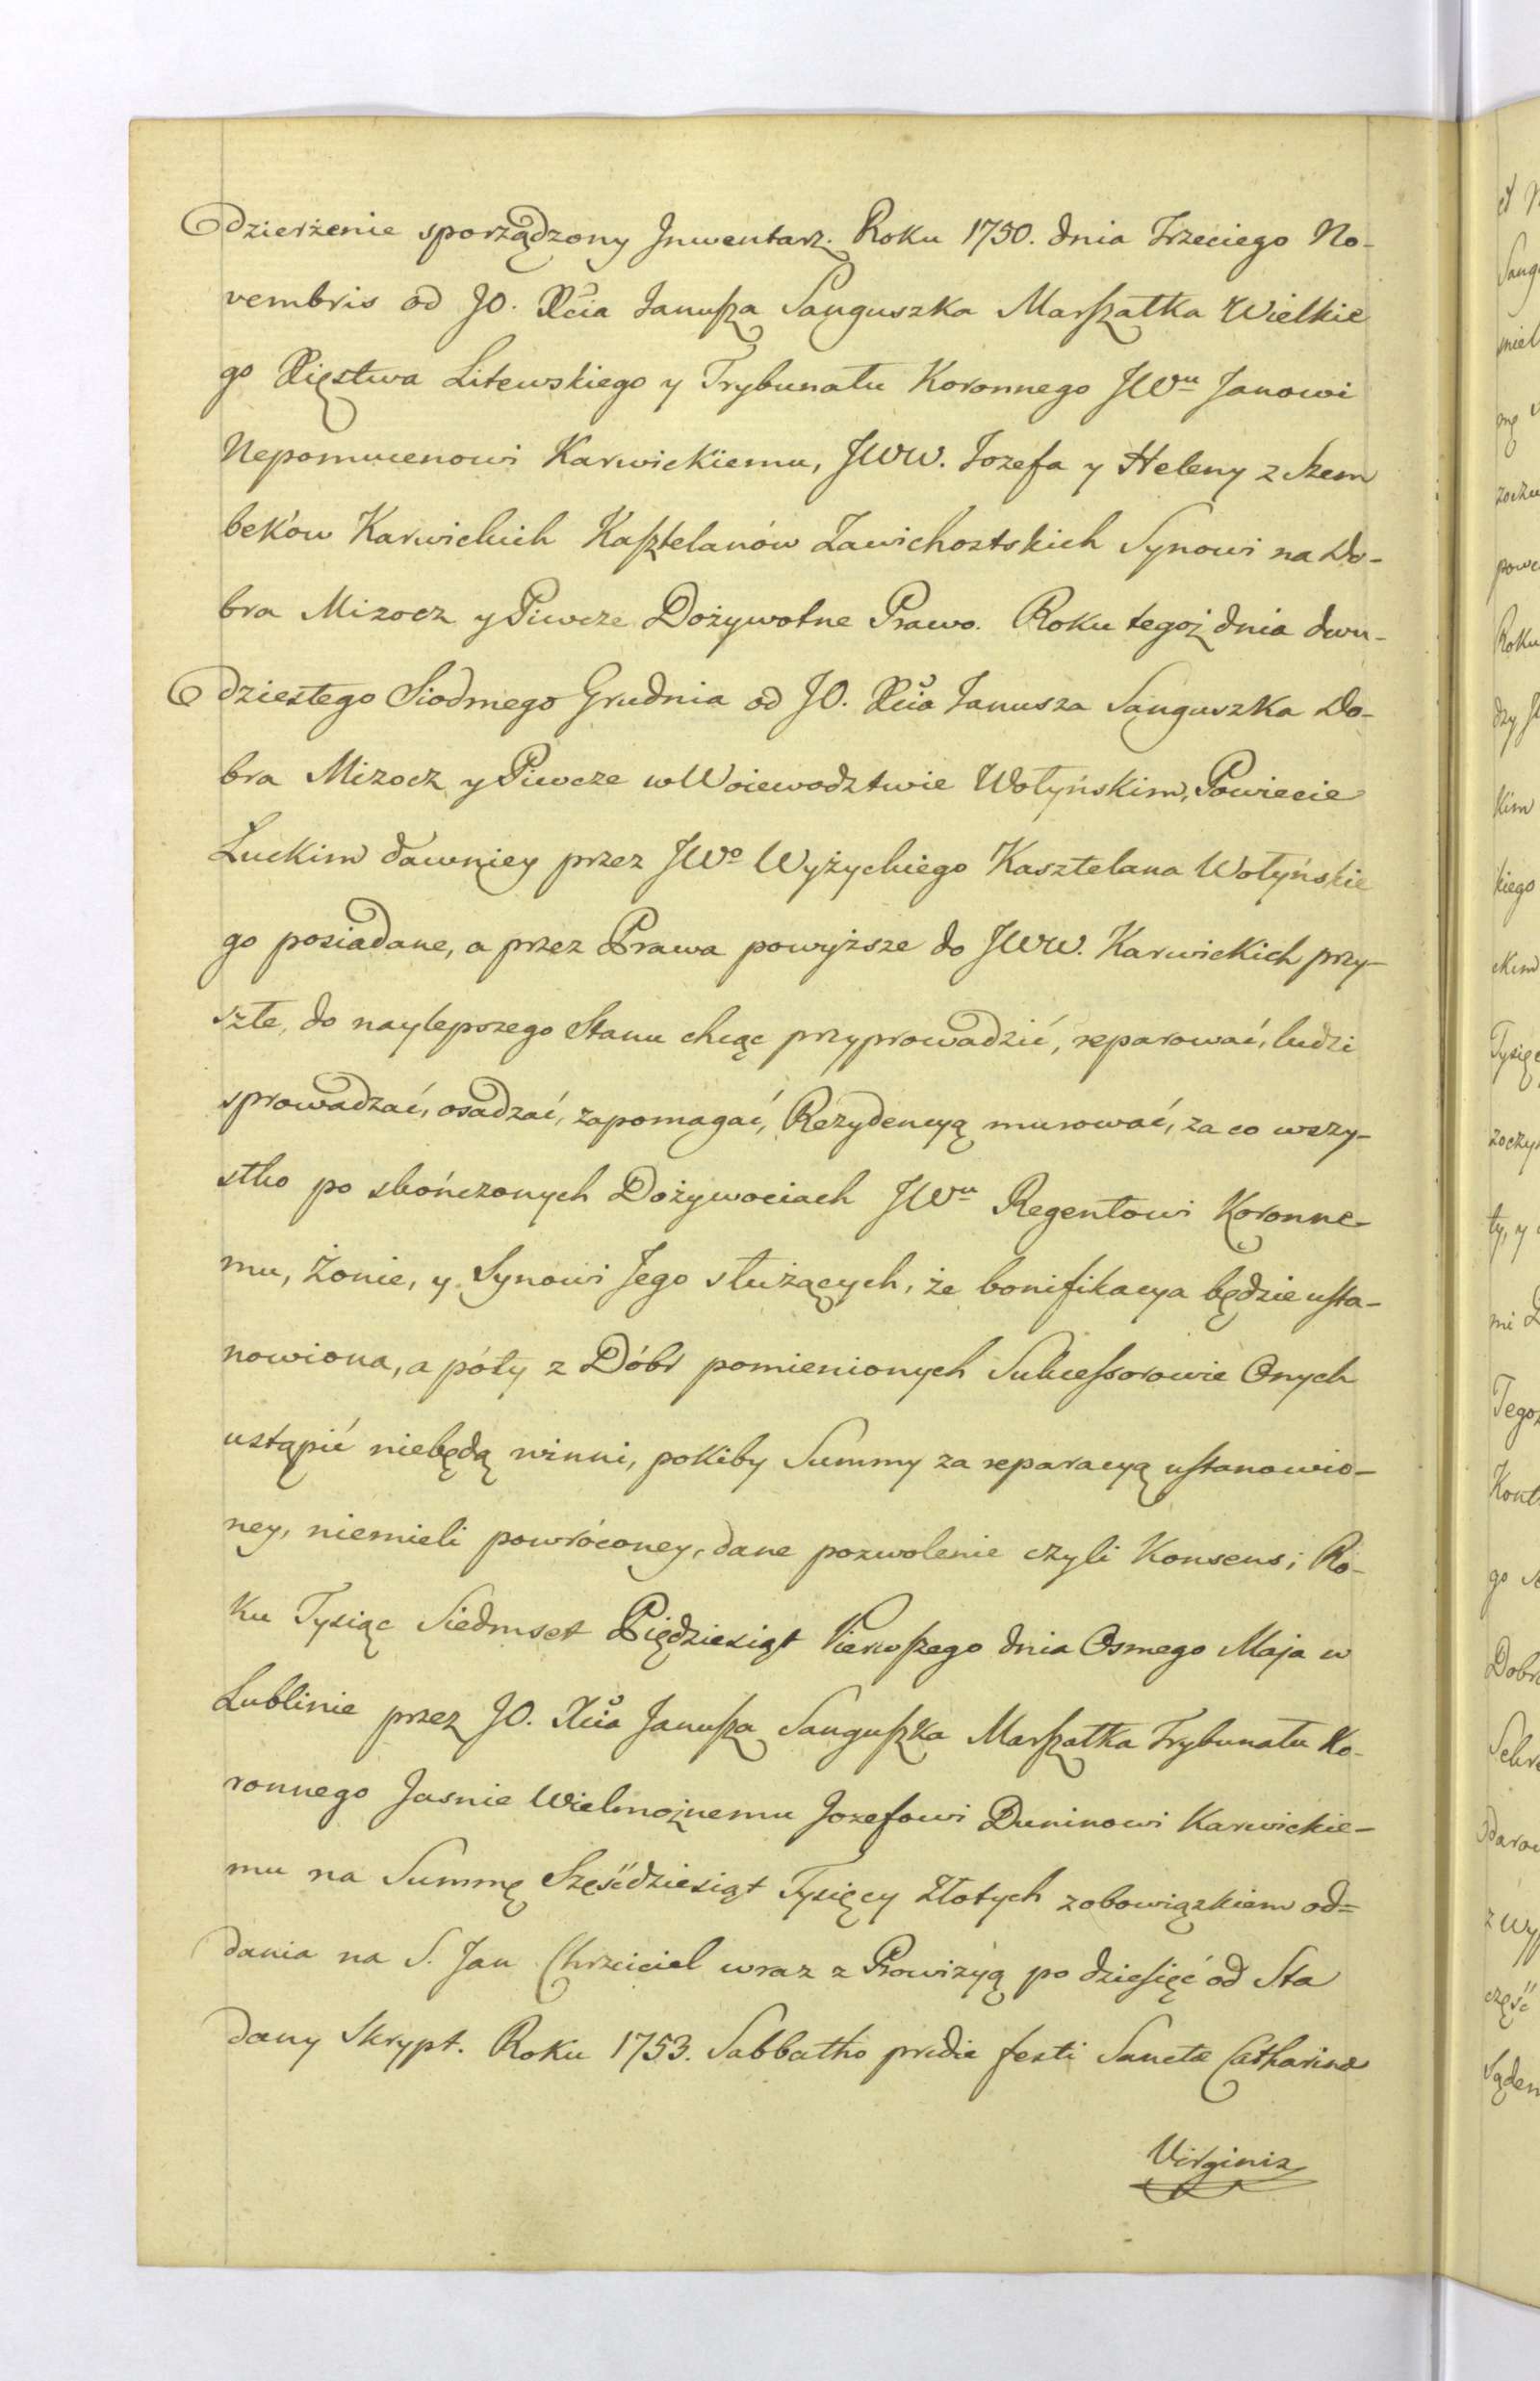 dzierżenie sporządzony Jnwentarz. Roku 1750. dnia Trzeciego No-
vembris od JO. Xcia Janusza Sanguszka Marszałka Wielkie
go Xięstwa Litewskiego y Trybunału Koronnego JWu Janowi
Nepomucenowi Karwickiemu, JWW. Jozefa y Heleny z Szem
beków Karwickich Kasztelanów Zawichostskich Synowi na Do-
bra Mizocz y Piwcze Dożywotne Prawo. Roku tegoż dnia dwu-
dziestego Siodmego Grudnia od JO. Xcia Janusza Sanguszka Do-
bra Mizocz y Piwcze w Woiewodztwie Wołyńskim, Powiecie
Łuckim dawniey przez JWo Wyżyckiego Kasztelana Wołyńskie
go posiadane, a przez Prawa powyższe do JWW. Karwickich przy-
szłe, do naylepszego Stanu chcąc przyprowadzić, reparować, ludzi
sprowadzać, osadzać, zapomagać, Rezydencyą murować, za co wszy-
stko po skończonych Dożywociach JWu Regentowi Koronne-
mu, Żonie, y Synowi Jego służących, że bonifikacya będzie usta-
nowiona, a póty z Dóbr pomienionych Sukcessorowie Onych
ustąpić niebędą winni, pokiby Summy za reparacyą ustanowio-
ney, niemieli powróconey, dane pozwolenie czyli Konsens; Ro-
ku Tysiąc Siedmset Pięдziesiąt Pierwszego dnia Osmego Maja w
Lublinie przez JO. Xcia Janusza Sanguszka Marszałka Trybunału Ko-
ronnego Jasnie Wielmożnemu Jozefowi Duninowi Karwickie-
mu na Summę Sześćdziesiąt Tysięcy Złotych zobowiązkiem od=
dania na S. Jan Chrzciciel wraz z Prowizyą po dziesięć od Sta
dany Skrypt. Roku 1753. Sabbatho pridie festi Sanctæ Catharinæ
Virginis